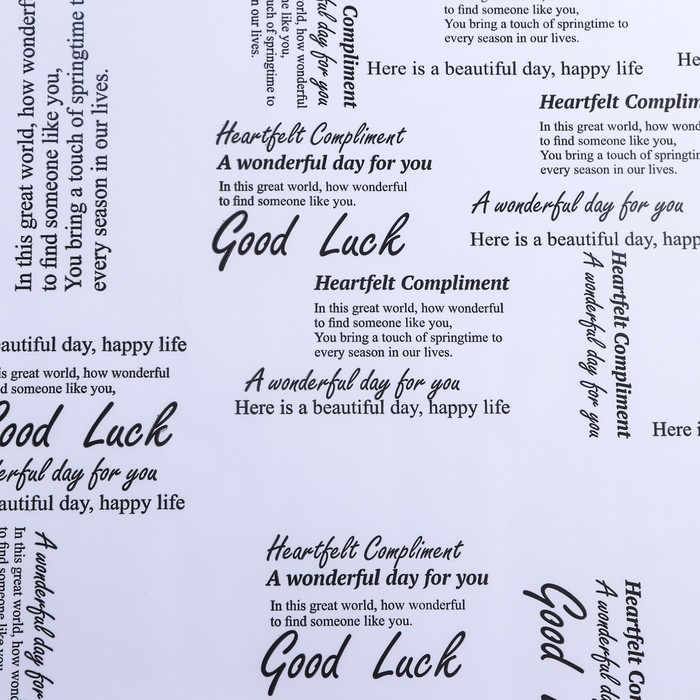 In this great world, how wonderf
to find someone like you,
You bring a touch of springtime t
every season in our lives.
Compliment
ful day for you
how wonderful
ne like you,
uch of springtime to
n our lives.
to find someone like you,
You bring a touch of springtime to
every season in our lives.
Here is a beautiful day, happy life
He
Heartfelt Complim
In this great world, how wond
to find someone like you,
You bring a touch of springtim
every season in our lives.
A wonderful day for you
Here is a beautiful day, happ
Heartfelt Compliment
A wonderful day for you
In this great world, how wonderful
to find someone like you.
Good Luck
Heartfelt Compliment
In this great world, how wonderful
to find someone like you,
You bring a touch of springtime to
every season in our lives.
A wonderful day for you
Here is a beautiful day, happy life
Heartfelt Compliment
A wonderful day for you
Here i
eautiful day, happy life
is great world, how wonderful
d someone like you,
ood Luck
erful day for you
autiful day, happy life
A wonderful day for
In this great world, how wond
to find someone like you
Heartfelt Compliment
A wonderful day for you
In this great world, how wonderful
to find someone like you.
Good Luck
Heartfelt Co
A wonderful da
Good